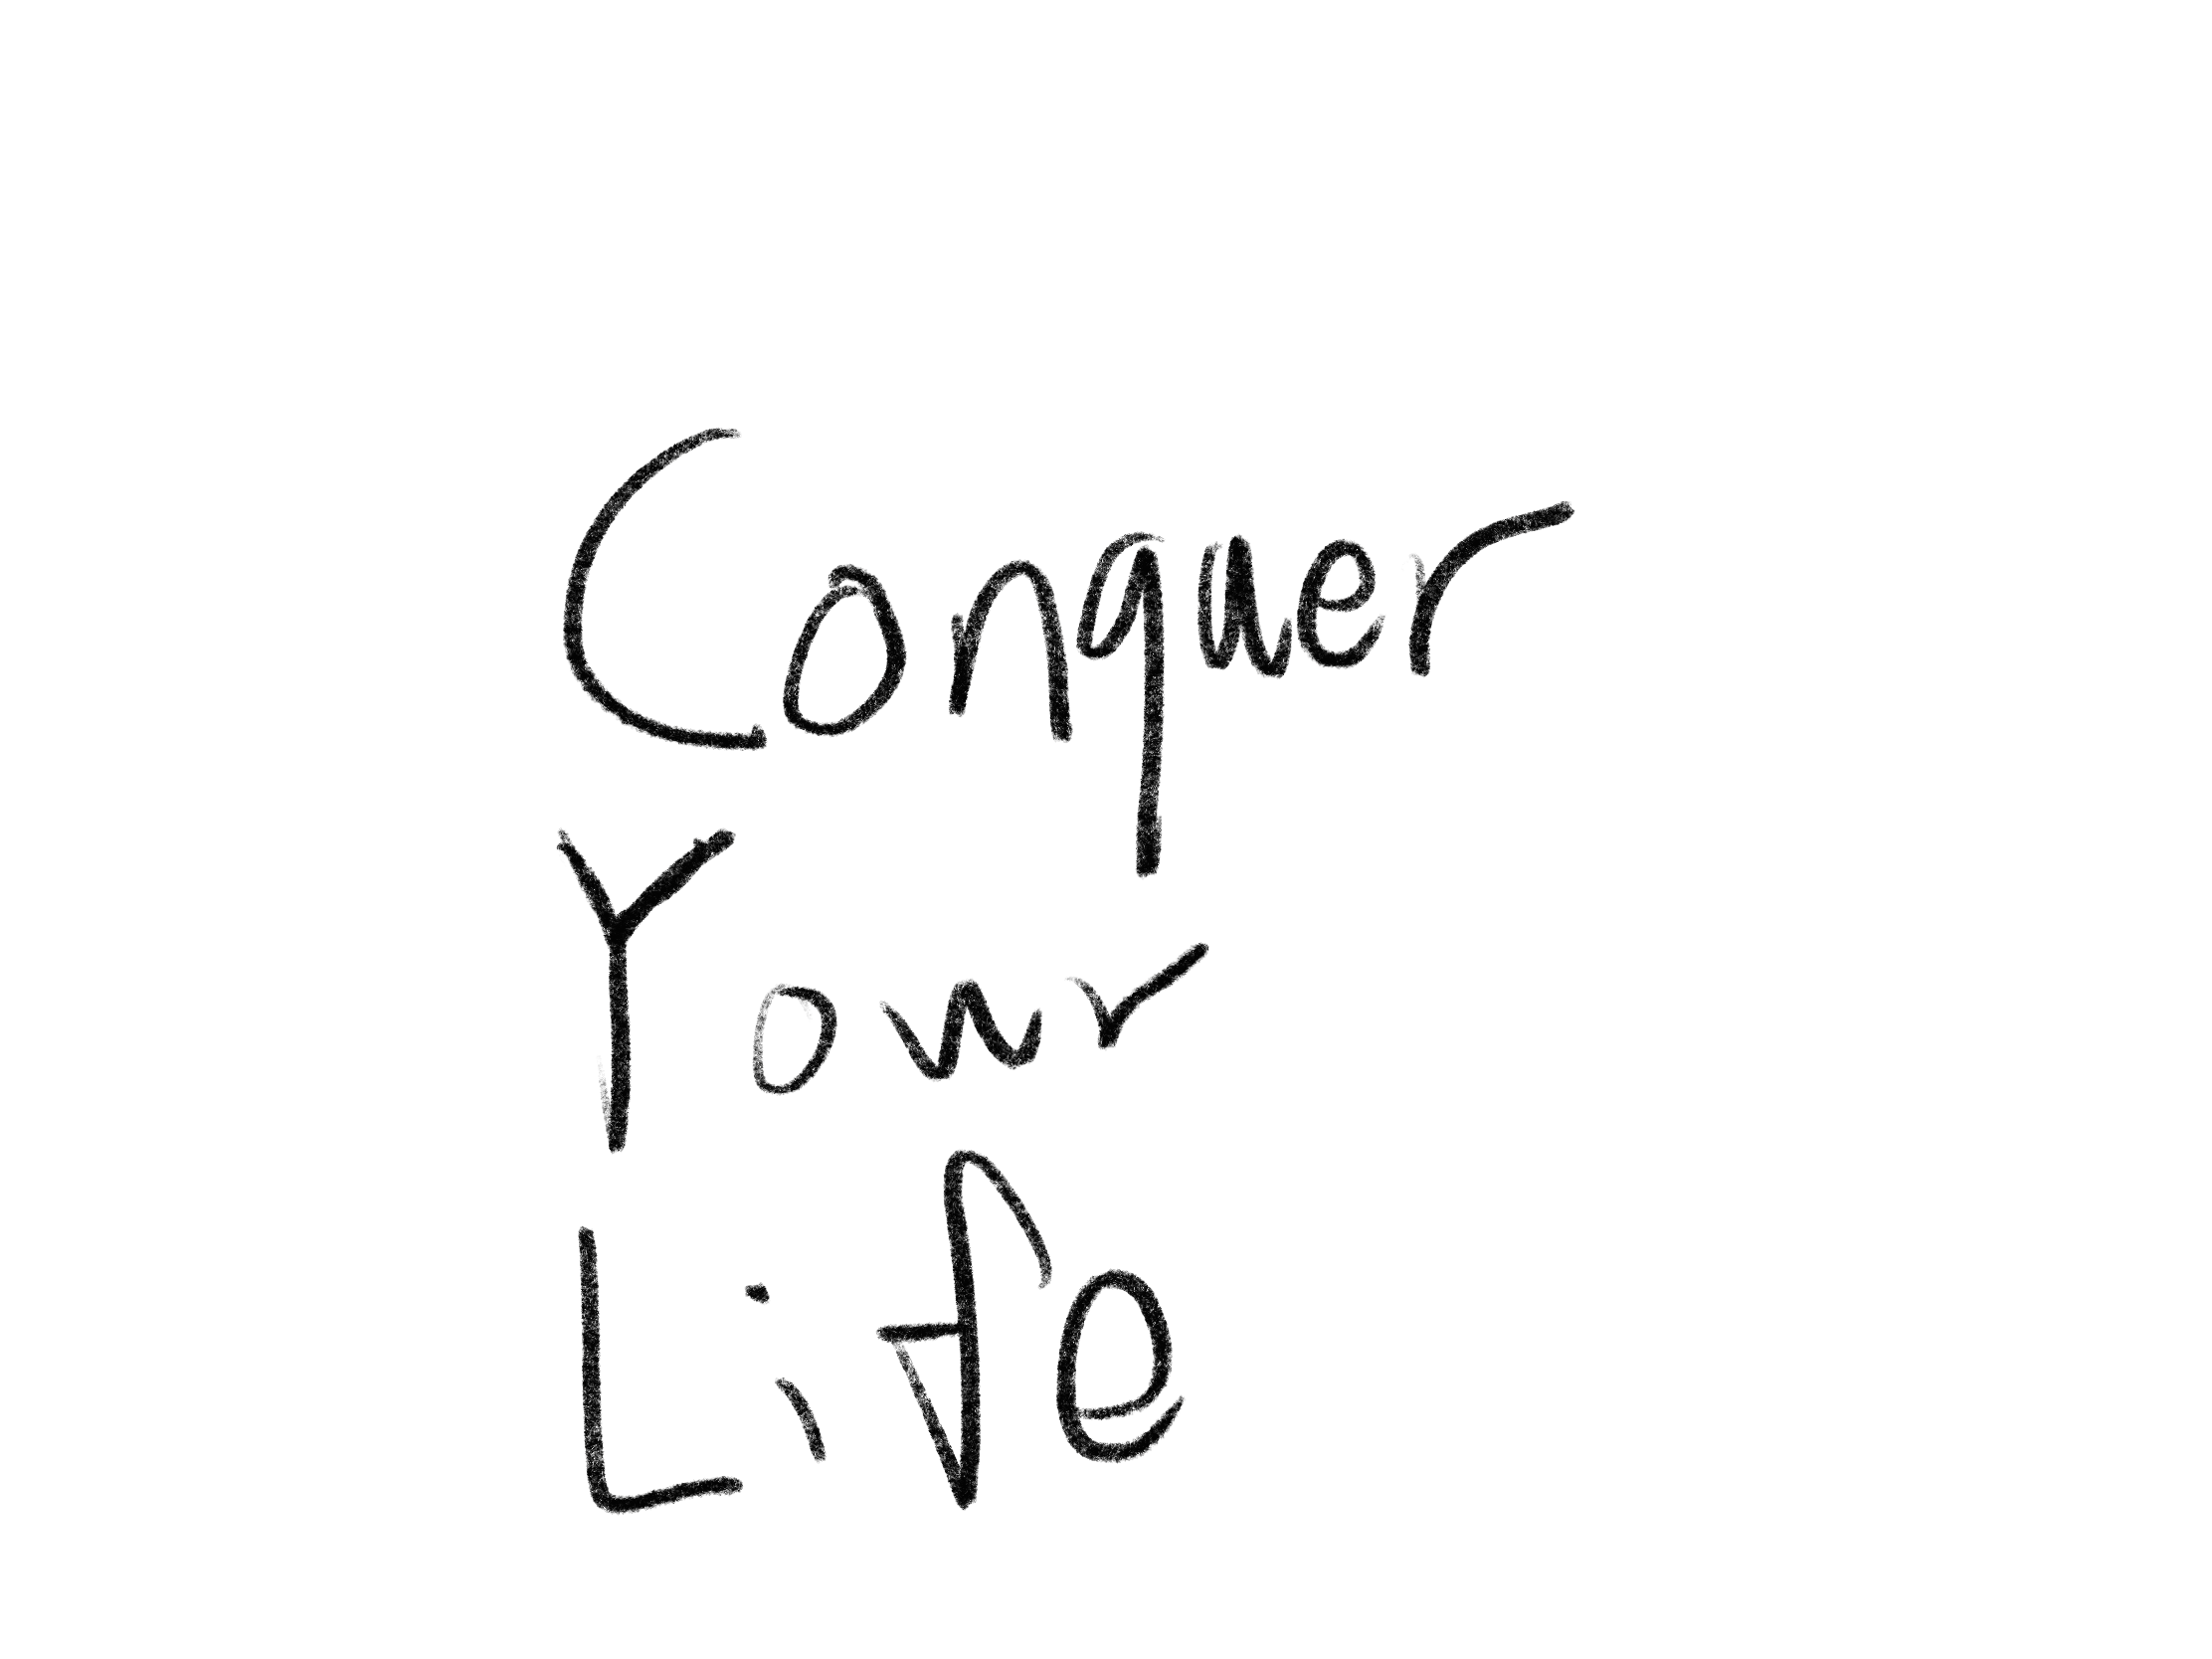 Conquer
Your
Life